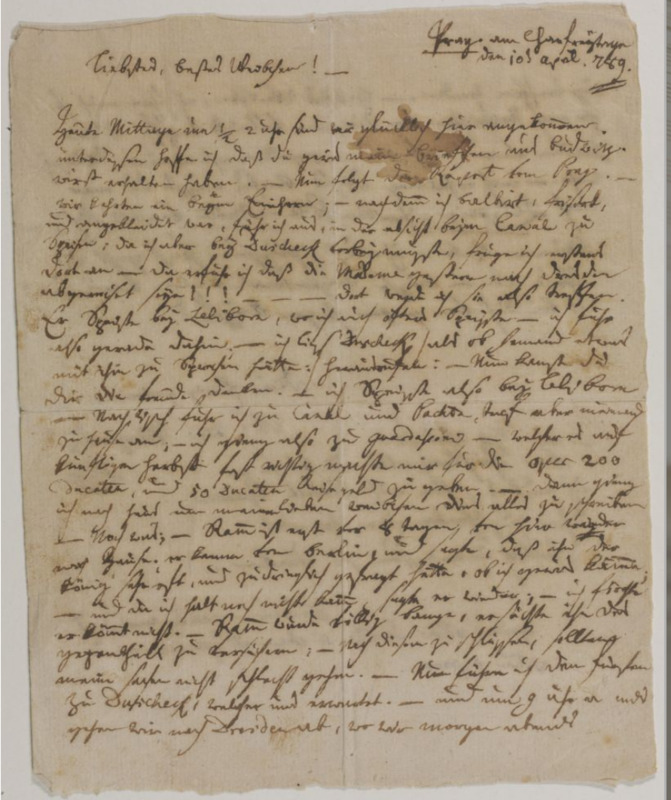 Prag am Charfreytage
den 10:t April. 789.
liebstes, bestes Weibchen! —
Heute Mittags um ½ 2 uhr sind wir glücklich hier angekommen.
unterdessen hoffe ich daß du gewis mein briefchen aus Budwitz
wirst erhalten haben. — Nun folgt der Raport vom Prag. —
wir kehrten ein beym Einhorn; — nachdem ich balbirt, frisirt,
und angekleidet war, fuhr ich aus, in der absicht beym Canal zu
speisen; da ich aber bey Duscheck vorbey musste, frug ich erstens
dort an — da erfuhr ich daß die Madame gestern nach Dresden
abgereiset seye!!! — — — dort werde ich sie also treffen.
Er speiste bey Leliborn, wo ich auch öfters speiste — ich fuhr
also gerade dahin. — ich ließ Duscheck /: als ob Jemand etwas
mit ihm zu sprechen hätte :/ herausrufen; — Nun kannst du
dir die freude denken. — ich speiste also bey Leliborn
— Nach tisch fuhr ich zu Canal und Pachta, traf aber niemand
zu hause an; — ich gieng also zu guardassoni — welcher es auf
künftigen herbst fast richtig machte mir für die oper 200
Ducaten, und 50 Ducaten Reisegeld zu geben. — dann gieng
ich nach haus um meinem lieben weibchen dies alles zu schreiben
— Noch was; — Ramm ist erst vor 8 tagen von hier wieder
nach hause, er kamm von Berlin, und sagte, daß ihn der
König sehr oft, und zudringlich gefragt hätte, ob ich gewis kämme,
— und da ich halt noch nicht kamm, sagte er wieder; — ich fürchte
er kömmt nicht. — Ramm wurde völlig bange, er suchte ihn des
gegentheils zu versichern; — nach diesem zu schlüssen, sollten
meine sachen nicht schlecht gehen. — Nun führe ich den fürsten
zu Duscheck, welcher uns erwartet. — und um 9 uhr abends
gehen wir nach Dresden ab, wo wir morgen abends